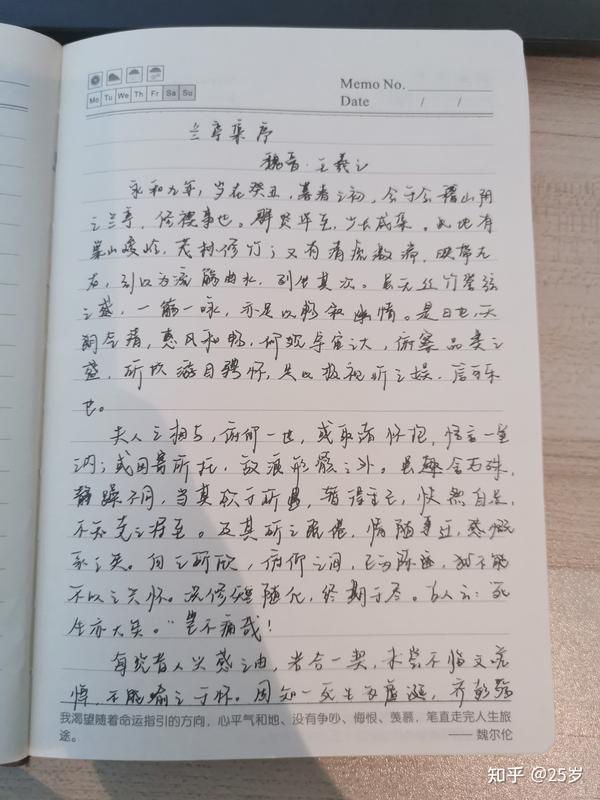 Memo No.
Mo Tu We Th Fr Sa Su
Date / /
兰亭集序
魏晋·王羲之
永和九年，岁在癸丑，暮春之初，会于会稽山阴
之兰亭，修禊事也。群贤毕至，少长咸集。此地有
崇山峻岭，茂林修竹；又有清流激湍，映带左
右，引以为流觞曲水，列坐其次。虽无丝竹管弦
之盛，一觞一咏，亦足以畅叙幽情。是日也，天
朗气清，惠风和畅，仰观宇宙之大，俯察品类之
盛，所以游目骋怀，足以极视听之娱，信可乐
也。
夫人之相与，俯仰一世，或取诸怀抱，悟言一室
内；或因寄所托，放浪形骸之外。虽趣舍万殊，
静躁不同，当其欣于所遇，暂得于己，快然自足，
不知老之将至。及其所之既倦，情随事迁，感慨
系之矣。向之所欣，俯仰之间，已为陈迹，犹不能
不以之兴怀。况修短随化，终期于尽。古人云：死
生亦大矣。”岂不痛哉！
每览昔人兴感之由，若合一契，未尝不临文嗟
悼，不能喻之于怀。固知一死生为虚诞，齐彭殇
我渴望随着命运指引的方向，心平气和地、没有争吵、悔恨、羡慕，笔直走完人生旅
途。 —— 魏尔伦
知乎 @25岁